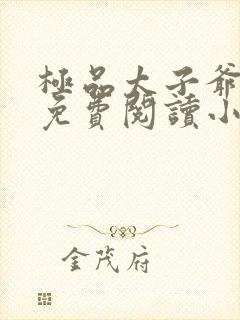 極品太子爺
免費閱讀小
金茂府